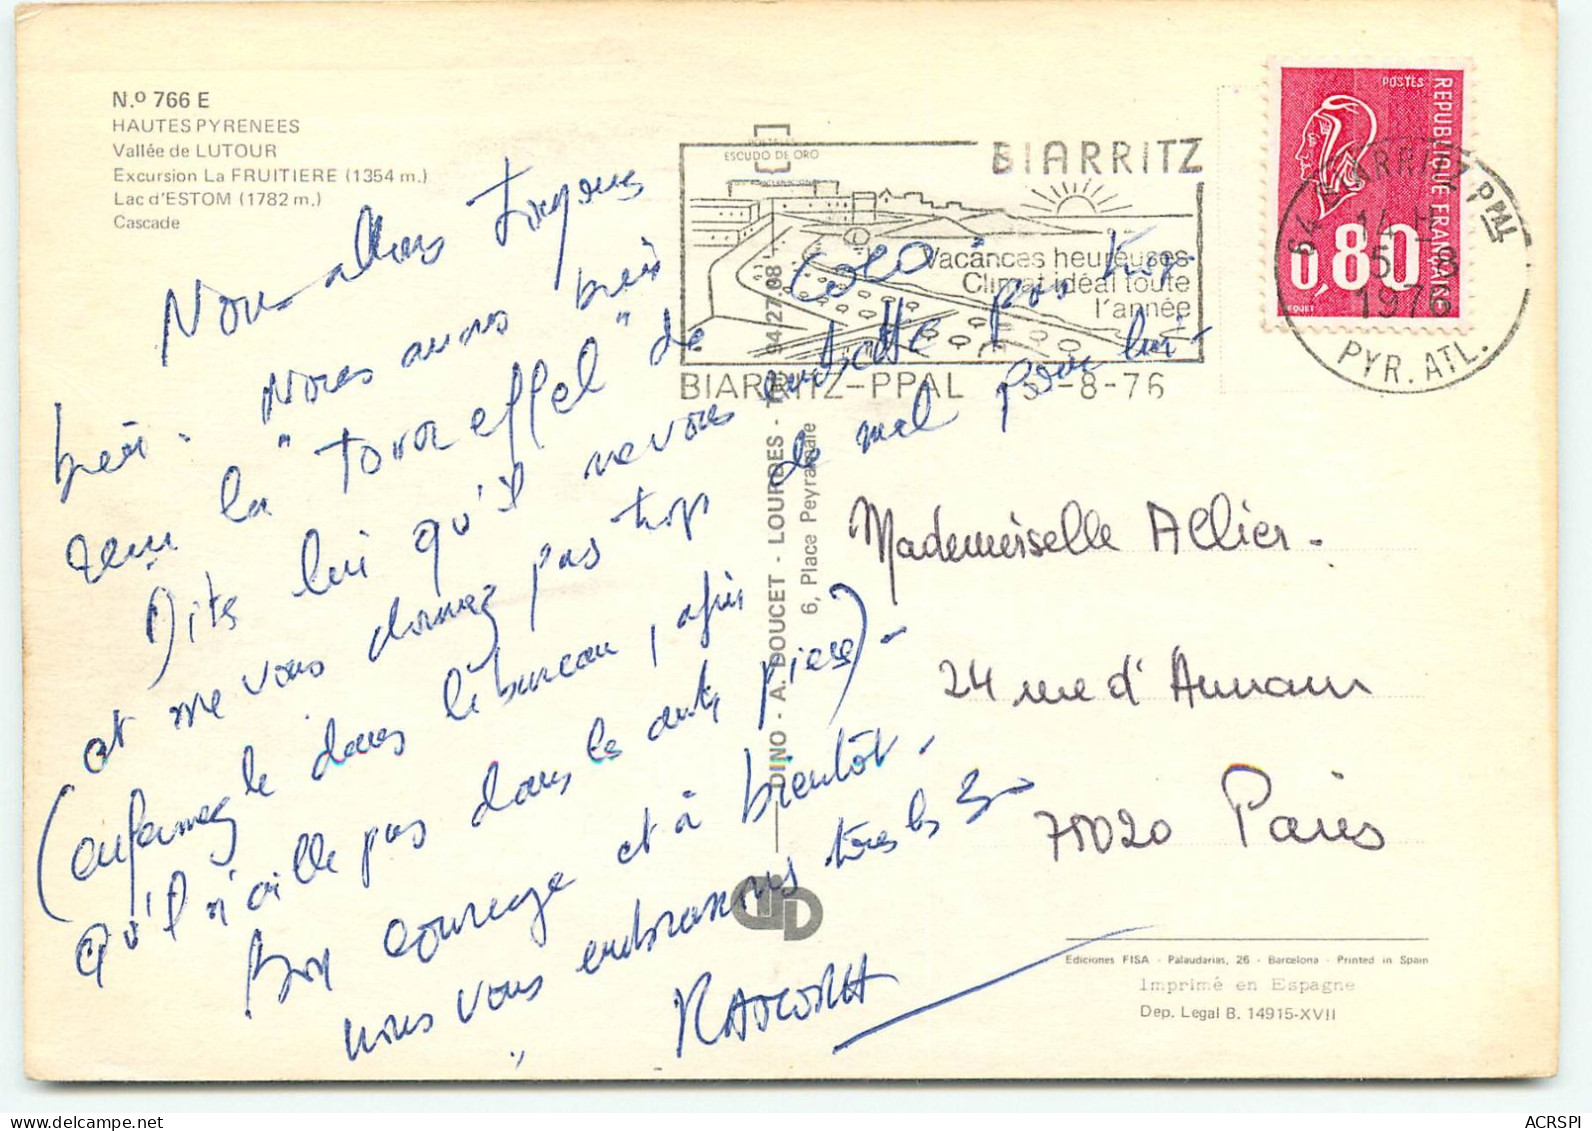 N.º 766 E
HAUTES PYRENEES
Vallée de LUTOUR
Excursion La FRUITIERE (1354 m.)
Lac d'ESTOM (1782 m.)
Cascade
POSTALES
ESCUDO DE ORO
BIARRITZ
Vacances heureuses
Climat idéal toute
l'année
BIARRITZ-PPAL 5-8-76
POSTES
REPUBLIQUE FRANCAISE
0,80
BEQUET
64 BIARRITZ PPAL
14 H
5-8
1976
PYR. ATL.
Nous allons toujours
bien. Nous avons bien
reçu la "Tour effel" de COLO
Dites lui qu'il ne vous embette pas trop
et ne vous donnez pas trop de mal pour lui-
(enfermez le dans le bureau, afin
qu'il n'aille pas dans les autres pièces)-
Bon courage et à bientôt.
nous vous embrassons tous les 3-
DINO - A. DOUCET - LOURDES - Tél. 94/27.08
6, Place Peyramale
Mademoiselle Allier.
24 rue d'Annam
75020 Paris
Ediciones FISA - Palaudarias, 26 - Barcelona - Printed in Spain
Imprimé en Espagne
Dep. Legal B. 14915-XVII
ACRSPI